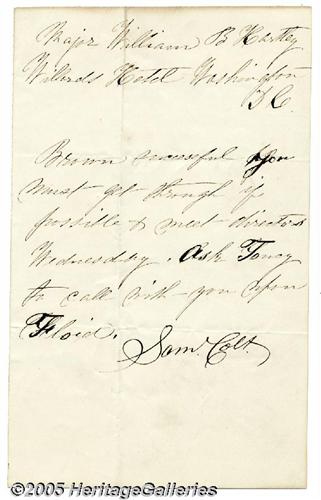 Major William B Hartley
Willards Hotel Washington
D C.
Brown successful you
must get through if
possible & meet directors
Wednesday. Ask Toucy
to call with you upon
Floid.
Saml. Colt.
©2005 HeritageGalleries